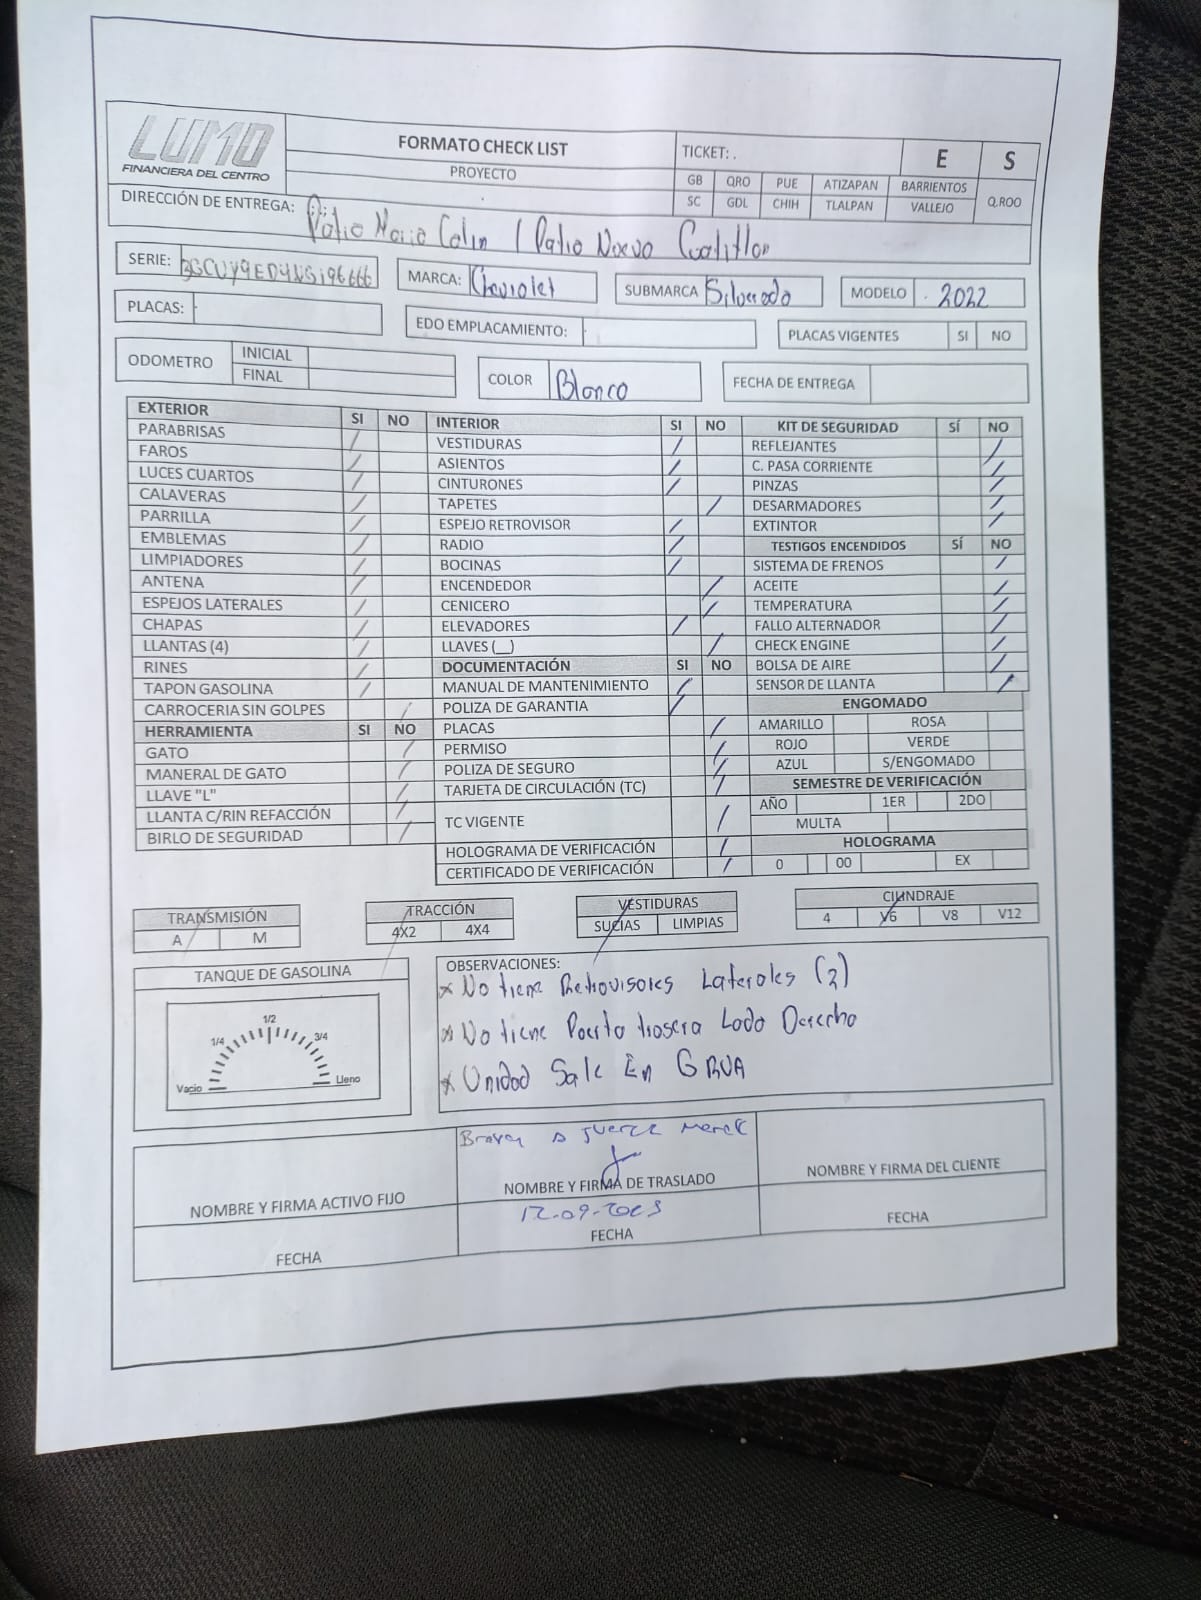 LUMO
FINANCIERA DEL CENTRO
FORMATO CHECK LIST
PROYECTO
TICKET: .
E
S
GB QRO PUE ATIZAPAN BARRIENTOS
SC GDL CHIH TLALPAN VALLEJO
Q.ROO
DIRECCIÓN DE ENTREGA: Patio Mario Colin / Patio Nuevo
SERIE:
MARCA: Chevrolet
SUBMARCA Silverado
MODELO 2022
PLACAS:
EDO EMPLACAMIENTO:
PLACAS VIGENTES SI NO
ODOMETRO INICIAL
FINAL
COLOR Blanco
FECHA DE ENTREGA
EXTERIOR SI NO
PARABRISAS /
FAROS /
LUCES CUARTOS /
CALAVERAS /
PARRILLA /
EMBLEMAS /
LIMPIADORES /
ANTENA /
ESPEJOS LATERALES /
CHAPAS /
LLANTAS (4) /
RINES /
TAPON GASOLINA /
CARROCERIA SIN GOLPES /
HERRAMIENTA SI NO
GATO /
MANERAL DE GATO /
LLAVE "L" /
LLANTA C/RIN REFACCIÓN /
BIRLO DE SEGURIDAD /
INTERIOR SI NO
VESTIDURAS /
ASIENTOS /
CINTURONES /
TAPETES /
ESPEJO RETROVISOR /
RADIO /
BOCINAS /
ENCENDEDOR /
CENICERO /
ELEVADORES /
LLAVES (__) /
DOCUMENTACIÓN SI NO
MANUAL DE MANTENIMIENTO /
POLIZA DE GARANTIA /
PLACAS /
PERMISO /
POLIZA DE SEGURO /
TARJETA DE CIRCULACIÓN (TC) /
TC VIGENTE /
HOLOGRAMA DE VERIFICACIÓN /
CERTIFICADO DE VERIFICACIÓN /
KIT DE SEGURIDAD SÍ NO
REFLEJANTES /
C. PASA CORRIENTE /
PINZAS /
DESARMADORES /
EXTINTOR /
TESTIGOS ENCENDIDOS SÍ NO
SISTEMA DE FRENOS /
ACEITE /
TEMPERATURA /
FALLO ALTERNADOR /
CHECK ENGINE /
BOLSA DE AIRE /
SENSOR DE LLANTA /
ENGOMADO
AMARILLO ROSA
ROJO VERDE
AZUL S/ENGOMADO
SEMESTRE DE VERIFICACIÓN
AÑO 1ER 2DO
MULTA
HOLOGRAMA
0 00 EX
TRANSMISIÓN
A M
TRACCIÓN
4X2 4X4
VESTIDURAS
SUCIAS LIMPIAS
CILINDRAJE
4 V6 V8 V12
TANQUE DE GASOLINA
Vacio 1/4 1/2 3/4 Lleno
OBSERVACIONES:
* No tiene Retrovisores Laterales (2)
* No tiene Puerta trasera Lado Derecho
* Unidad Sale En GRUA
NOMBRE Y FIRMA ACTIVO FIJO
NOMBRE Y FIRMA DE TRASLADO
NOMBRE Y FIRMA DEL CLIENTE
12-09-2023
FECHA
FECHA
FECHA